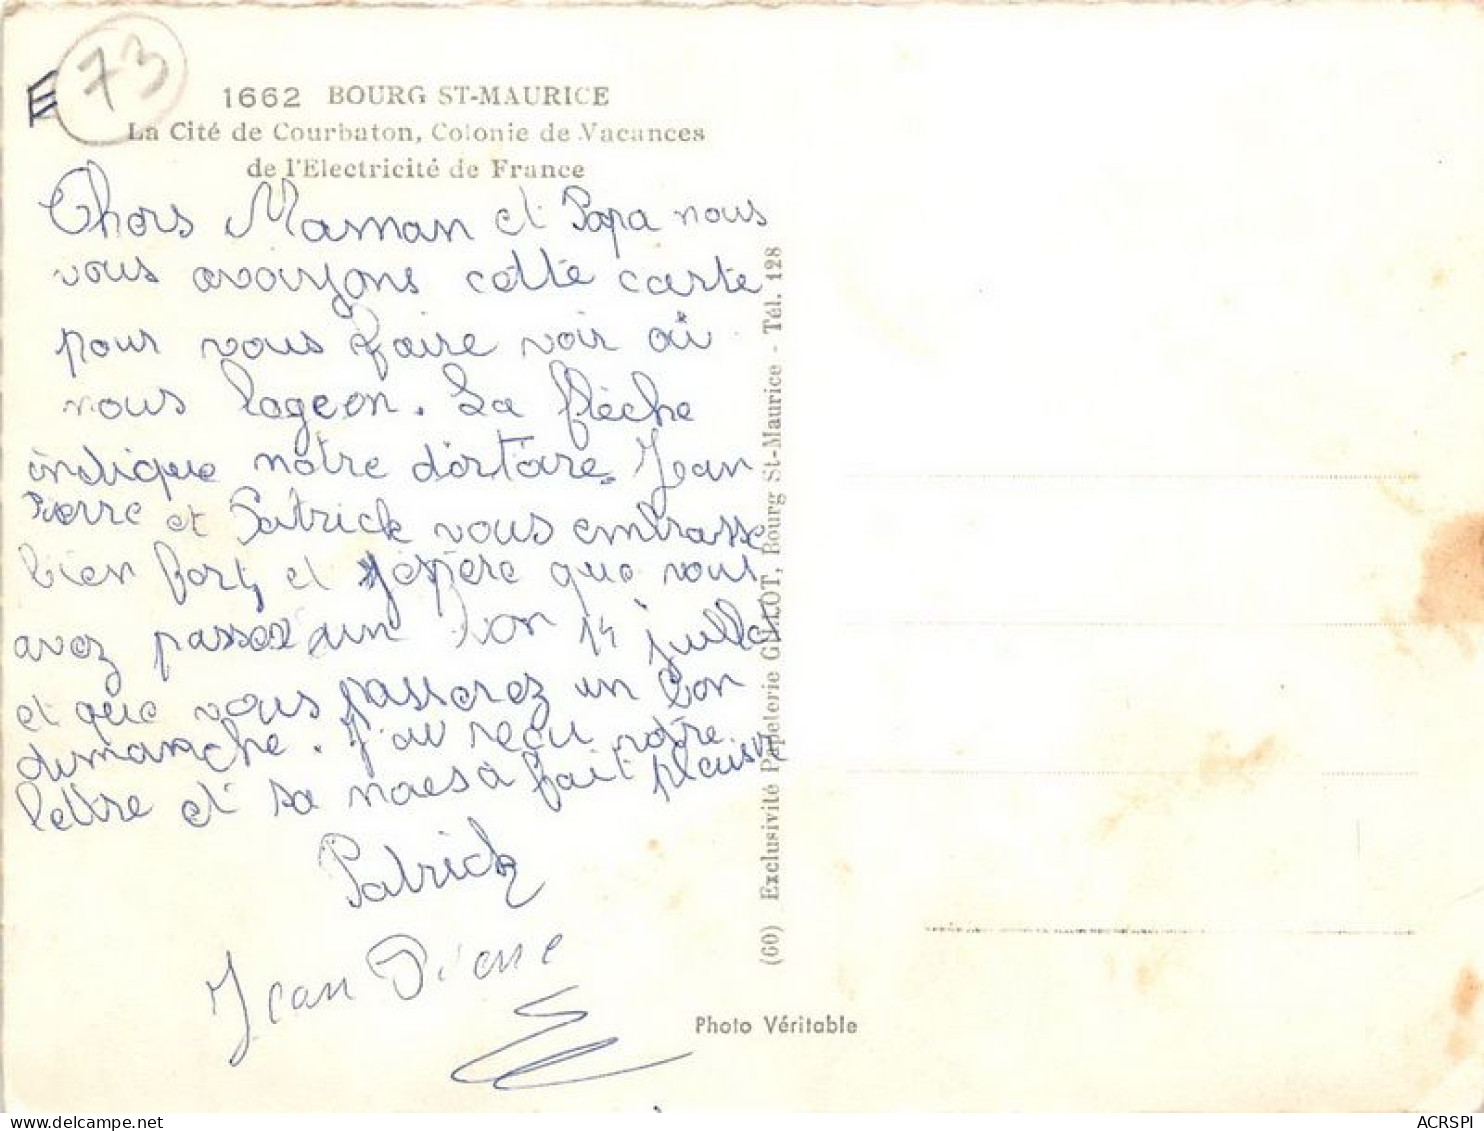 73
E
1662 BOURG ST-MAURICE
La Cité de Courbaton, Colonie de Vacances
de l'Electricité de France
Chers Maman et Papa nous
vous avoiyons cette carte
pour vous faire voir où
nous lageon. La flèche
indique notre dortoire. Jean
Pierre et Patrick vous embrasse
bien fort, et j'espère que vous
avez passez un bon 14 juillet
et que vous passerez un bon
dimanche. J'ai reçu votre
lettre et sa nous à fait plaisir
Patrick
Jean Pierre
(60) Exclusivité Papeterie GILLOT, Bourg St-Maurice - Tél. 128
Photo Véritable
ACRSPI